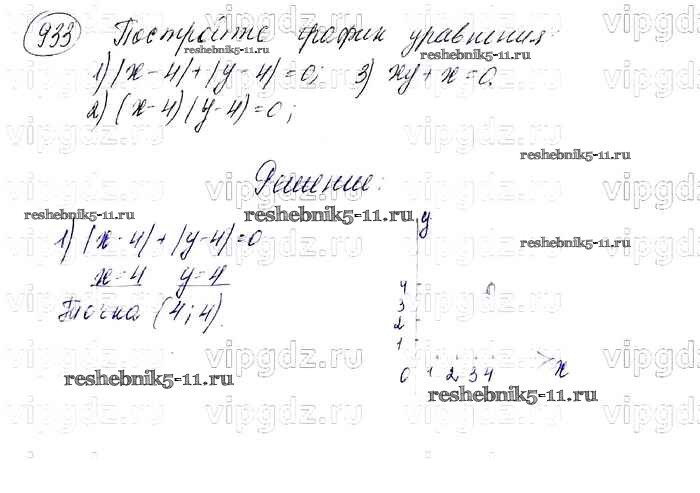 933 Постройте график уравнения:
1) |x-4|+|y-4|=0; 3) xy+x=0.
2) (x-4)(y-4)=0;
Решение:
1) |x-4|+|y-4|=0
x=4 y=4
Точка (4;4)
y
4
3
2
1
0 1 2 3 4 x
reshebnik5-11.ru
reshebnik5-11.ru
reshebnik5-11.ru
reshebnik5-11.ru
reshebnik5-11.ru
reshebnik5-11.ru
reshebnik5-11.ru
vipgdz.ru vipgdz.ru vipgdz.ru vipgdz.ru
vipgdz.ru vipgdz.ru vipgdz.ru vipgdz.ru
vipgdz.ru vipgdz.ru vipgdz.ru vipgdz.ru
vipgdz.ru vipgdz.ru vipgdz.ru vipgdz.ru
vipgdz.ru vipgdz.ru vipgdz.ru vipgdz.ru
vipgdz.ru vipgdz.ru vipgdz.ru vipgdz.ru
vipgdz.ru vipgdz.ru vipgdz.ru vipgdz.ru